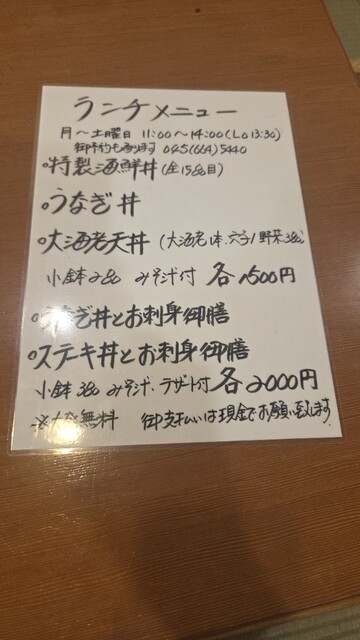 ランチメニュー
月〜土曜日 11:00〜14:00(Lo 13:30)
御予約もあります 045(664)5440
•特製海鮮丼(全15品目)
•うなぎ丼
•大海老天丼(大海老1本、穴子1、野菜3品)
小鉢2品 みそ汁付 各1500円
ぎ丼とお刺身御膳
•ステーキ丼とお刺身御膳
小鉢3品 みそ汁、デザート付 各2000円
無料 御支払いは現金でお願い致します